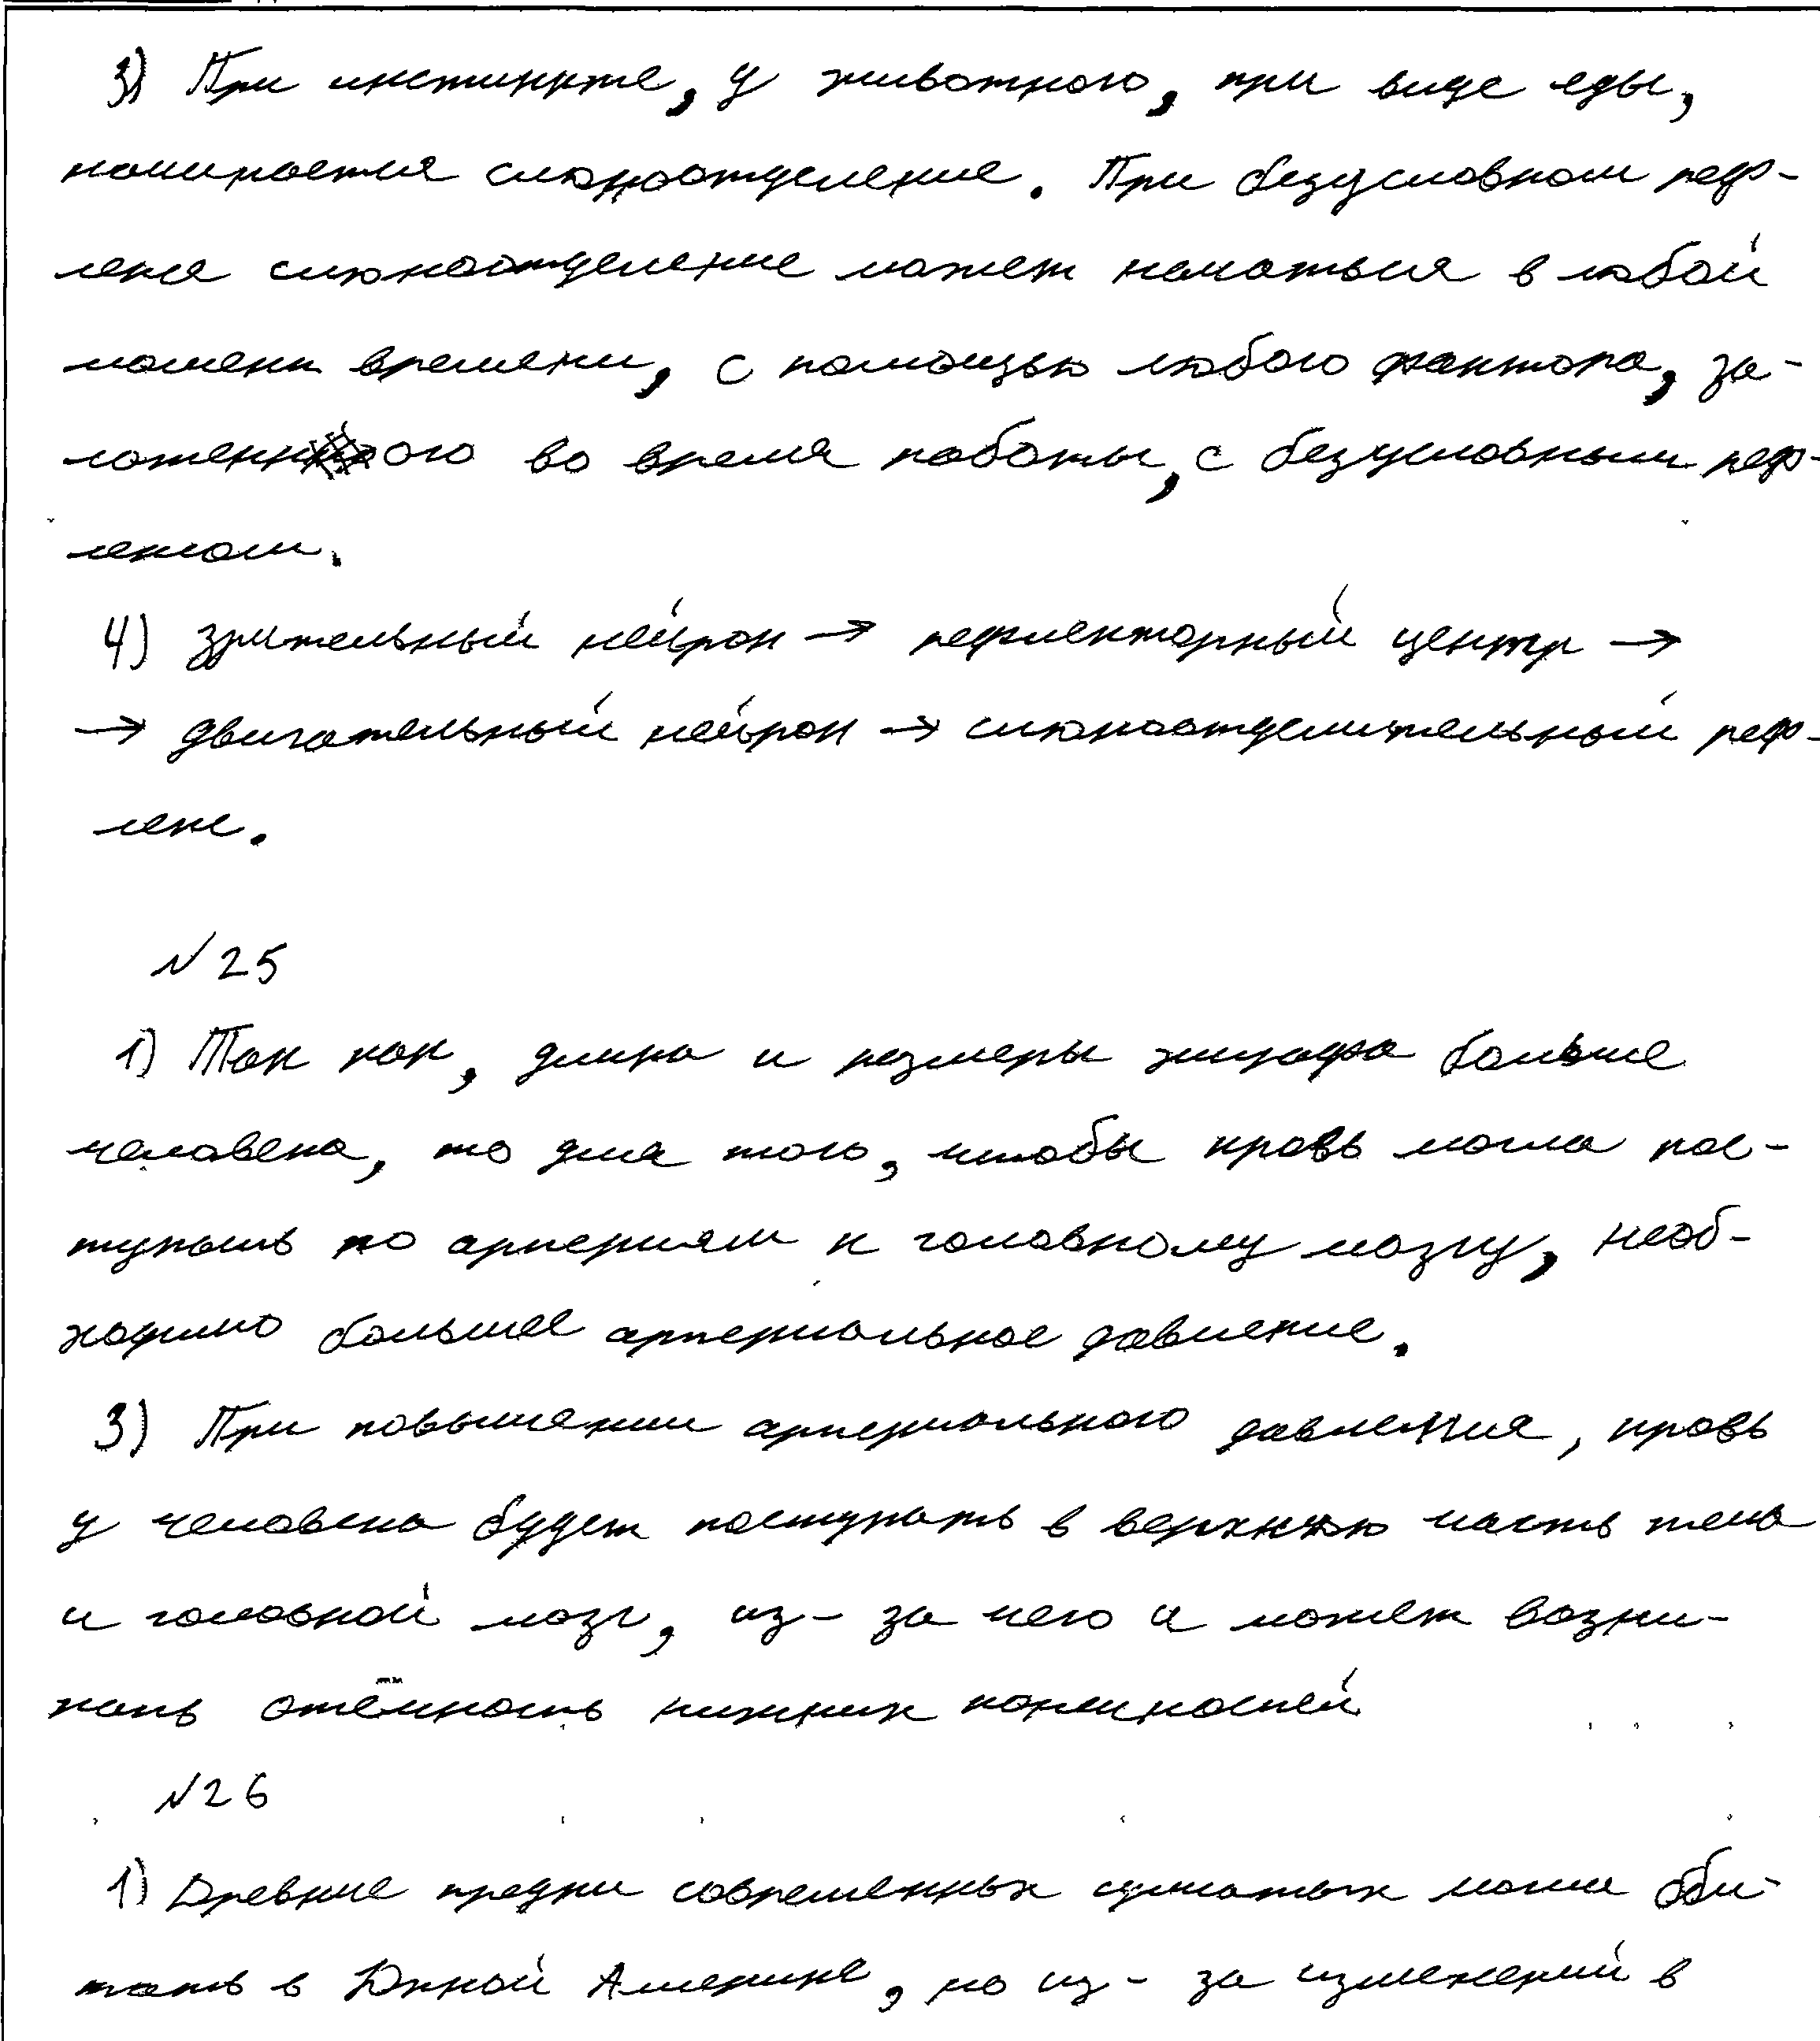 3) При инстинкте, у животного, при виде еды,
начинается слюноотделение. При безусловном реф-
лексе слюноотделение может начаться в любой
момент времени, с помощью любого фактора, за-
ложенного во время работы, с безусловным реф-
лексом.
4) зрительный нейрон → рефлекторный центр →
→ двигательный нейрон → слюноотделительный реф-
лекс.
№ 25
1) Так как, длина и размеры жирафа больше
человека, то для того, чтобы кровь могла пос-
тупать по артериям к головному мозгу, необ-
ходимо большее артериальное давление.
3) При повышении артериального давления, кровь
у человека будет поступать в верхнюю часть тела
и головной мозг, из-за чего и может возни-
кать отёчность нижних конечностей
№ 26
1) Древние предки современных сумчатых могли оби-
тать в Южной Америке, но из-за изменений в